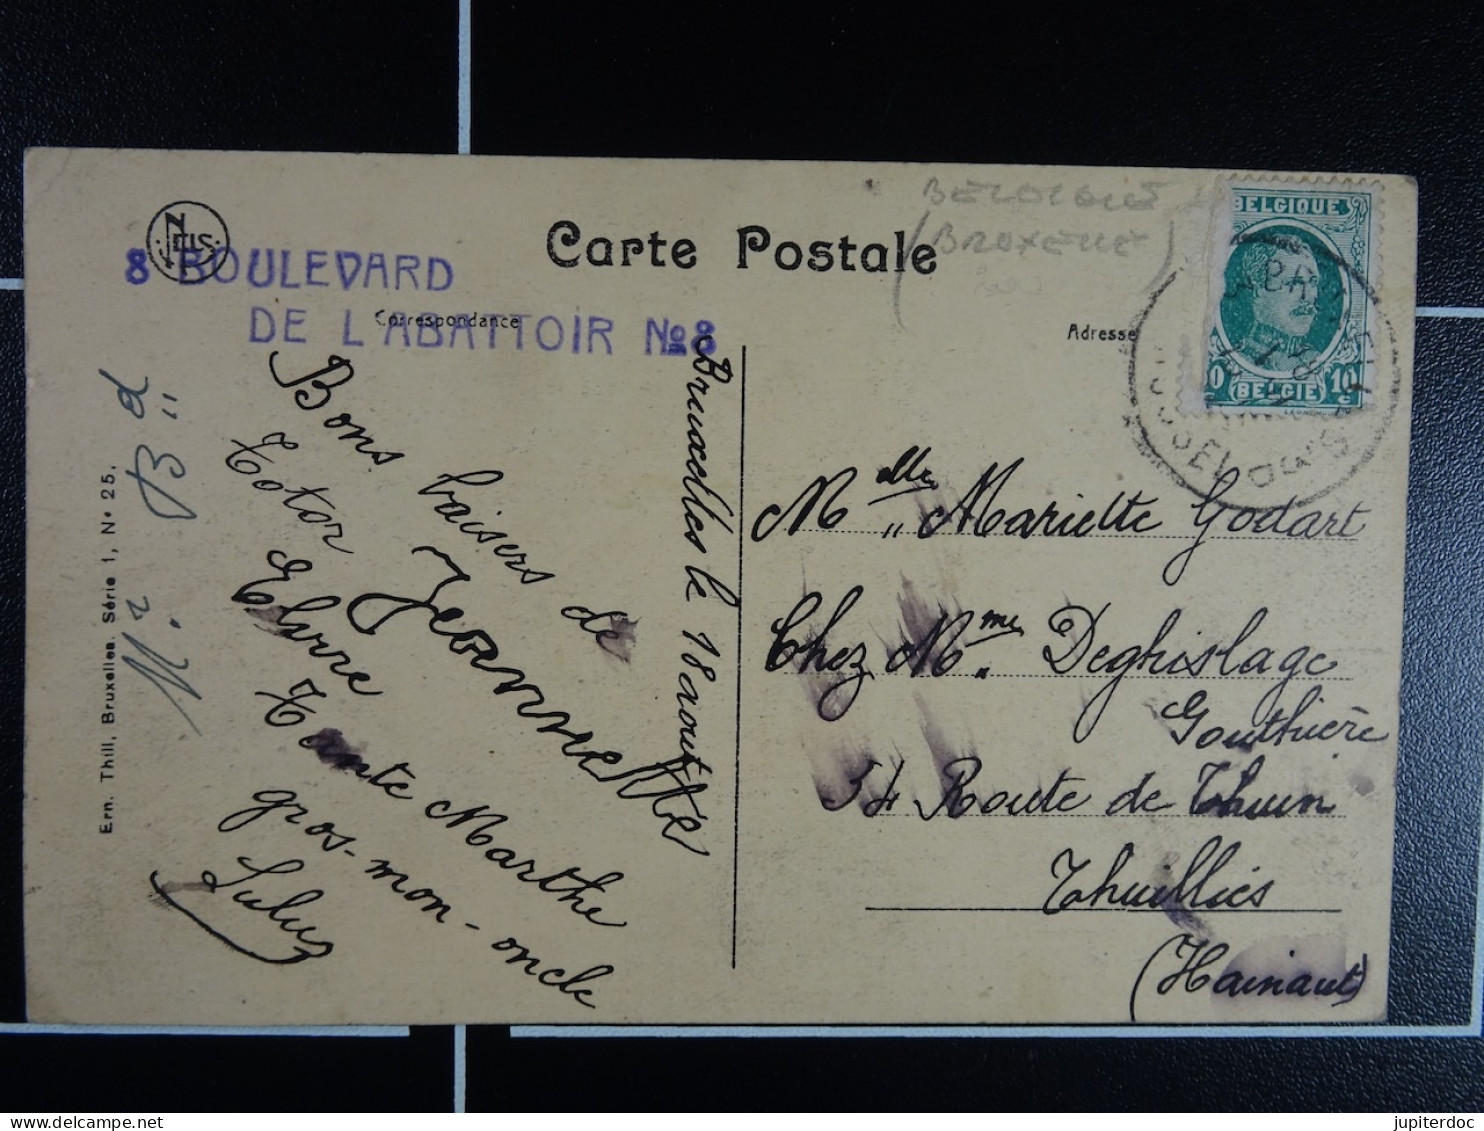 NELS
8 BOULEVARD
DE L'ABATTOIR No 8
Carte Postale
Correspondance
Adresse
BRUXELLES
BELGIQUE
10 10 c
BELGIE
Ern. Thill, Bruxelles. Série 1, N° 25.
Bruxelles le 18 août
Bons baisers de
Totor Jeannette
Tante Marthe
gros-mon-oncle
Lulu
Melle Mariette Godart
Chez Mme Deghislage
Gouthière
54 Route de Thuin
Thuillies
(Hainaut)
jupiterdoc